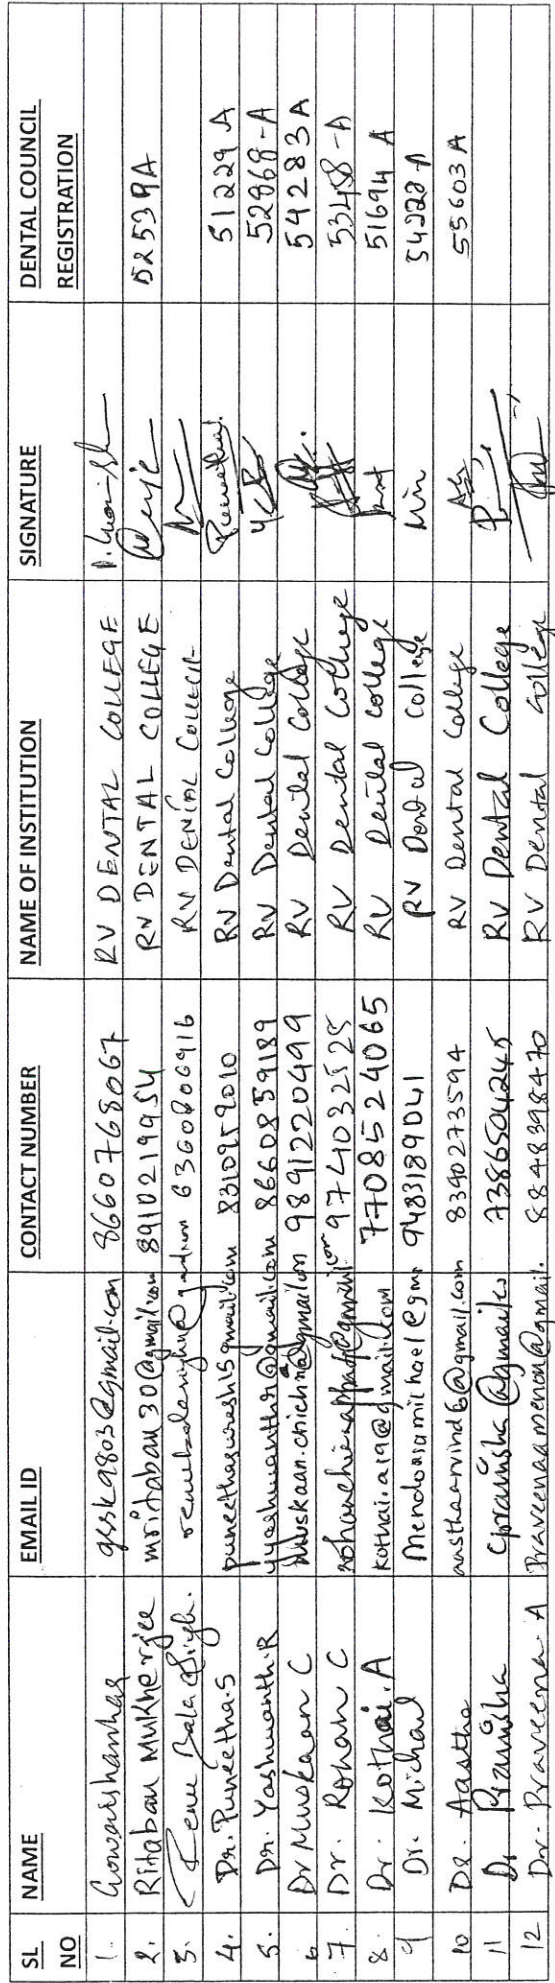 SL NO NAME EMAIL ID CONTACT NUMBER NAME OF INSTITUTION SIGNATURE DENTAL COUNCIL REGISTRATION
1. Gowrishankar gssk9803@gmail.com 8660768067 RV DENTAL COLLEGE
2. Ritaban Mukherjee mritaban30@gmail.com 8910219954 RV DENTAL COLLEGE 52539A
3. Renu Bala Singh. 6360806916 RV DENTAL COLLEGE
4. Dr. Puneetha.S puneethasuresh15gmail.com 8310959010 RV Dental College Puneetha.S. 51229 A
5. Dr. Yashwanth.R yyashwanthr@gmail.com 8660859189 RV Dental College 52868-A
6 Dr Muskaan C Muskaan.chichra@gmail.com 9891220499 RV Dental College 54283A
7. Dr. Rohan C rohanchinnappa@gmail.com 9740325 25 RV Dental College 53458-A
8. Dr. Kothai.A kothai.a19@gmail.com 7708524065 RV Dental College 51694 A
9 Dr. Michael Mendonsamichael@gm 9483189041 RV Dental college 54228-A
10 Dr. Aastha aasthaarvind6@gmail.com 8390273594 RV Dental College 55603A
11 Dr Pranisha @gmail.co 7386504245 RV Dental College
12 Dr. Praveena. A Praveenaamenon@gmail. 8848398470 RV Dental College